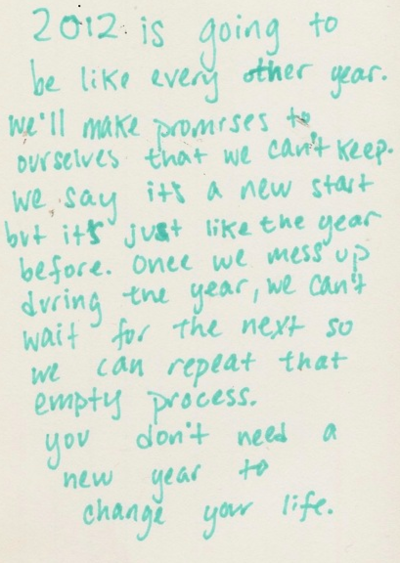 2012 is going to
be like every other year.
we'll make promises to
ourselves that we can't keep.
we say it's a new start
but it's just like the year
before. Once we mess up
during the year, we can't
wait for the next so
we can repeat that
empty process.
you don't need a
new year to
change your life.